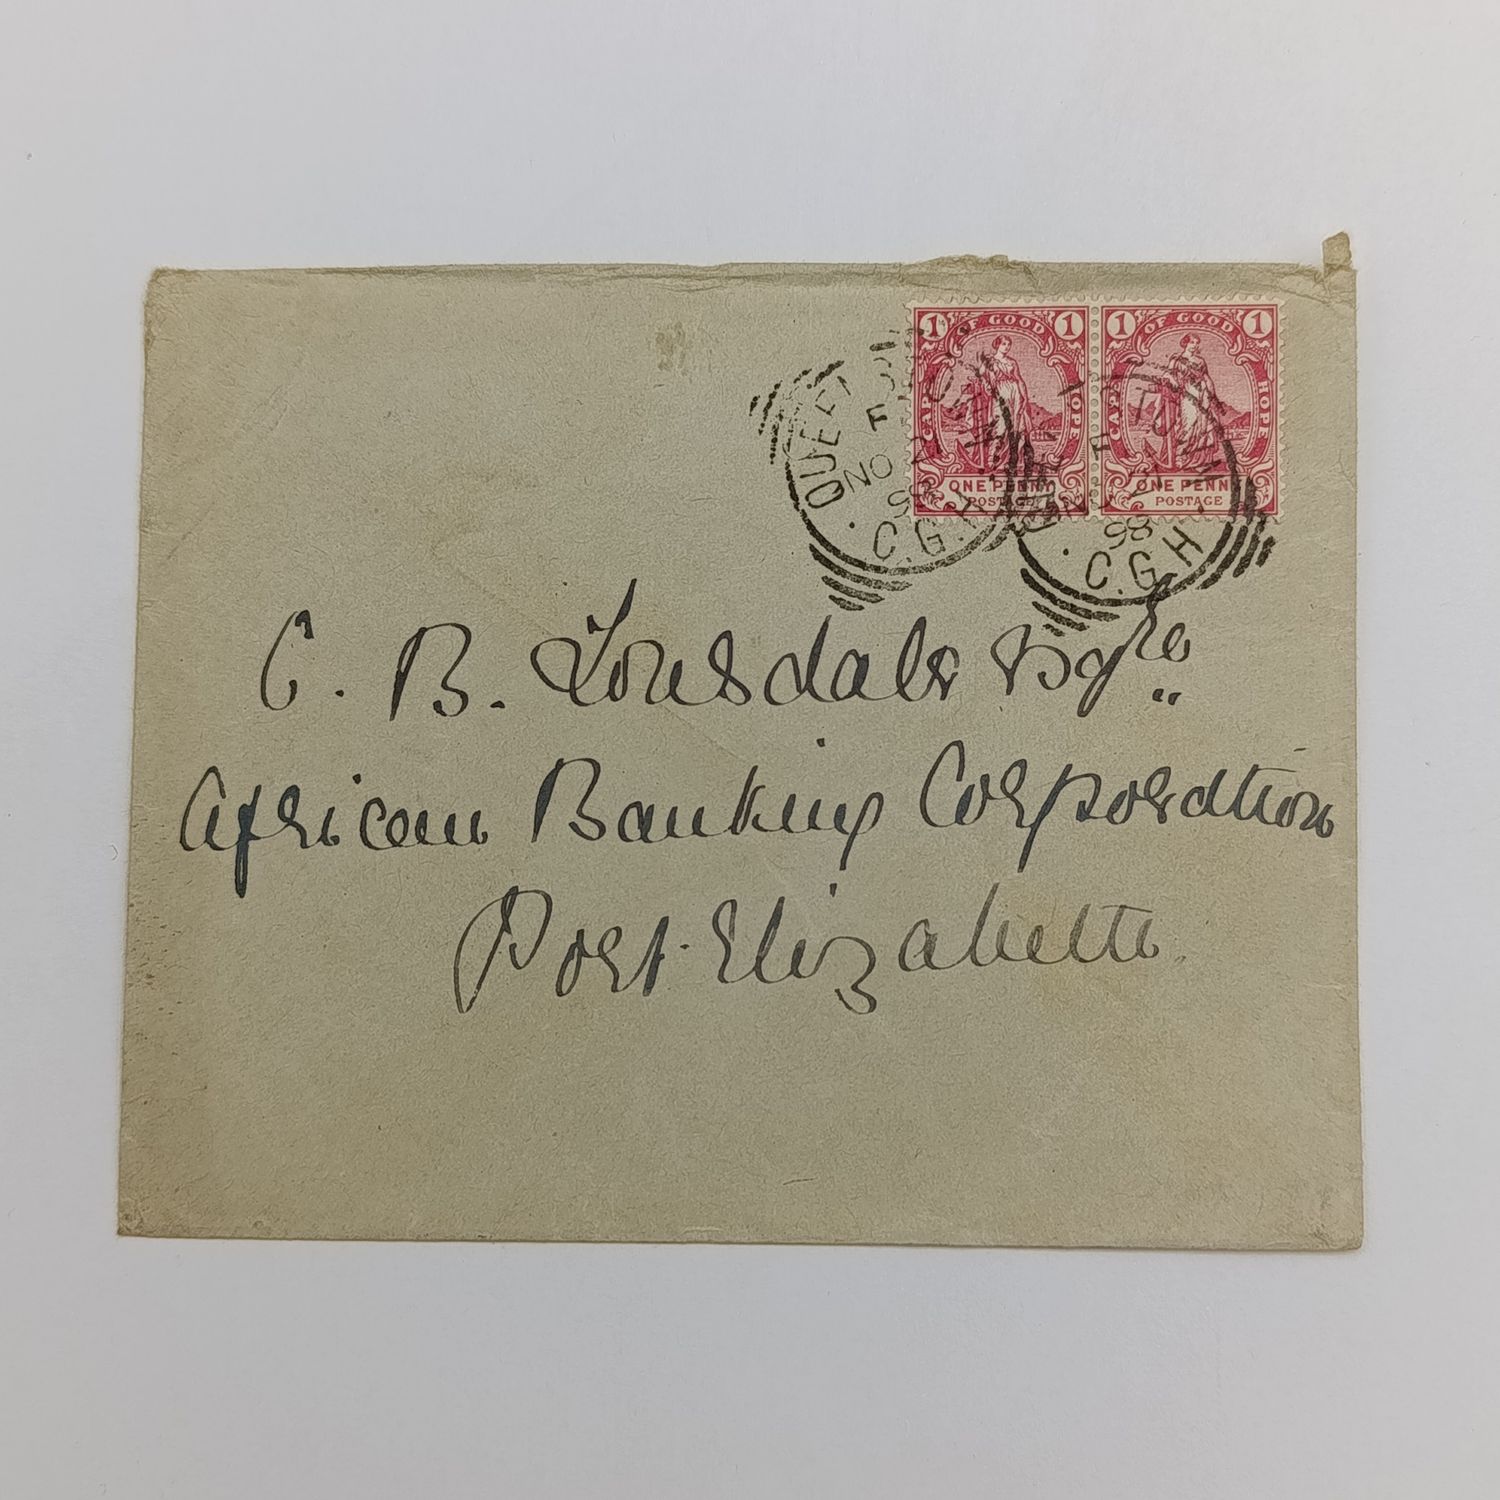 1 OF GOOD 1
CAPE HOPE
ONE PENNY
POSTAGE
1 OF GOOD 1
CAPE HOPE
ONE PENNY
POSTAGE
F
NO 2
98
C.G.H
TOWN
F
98
C.G.H
C. B. Lonsdale Esqre
African Banking Corporation
Port Elizabeth